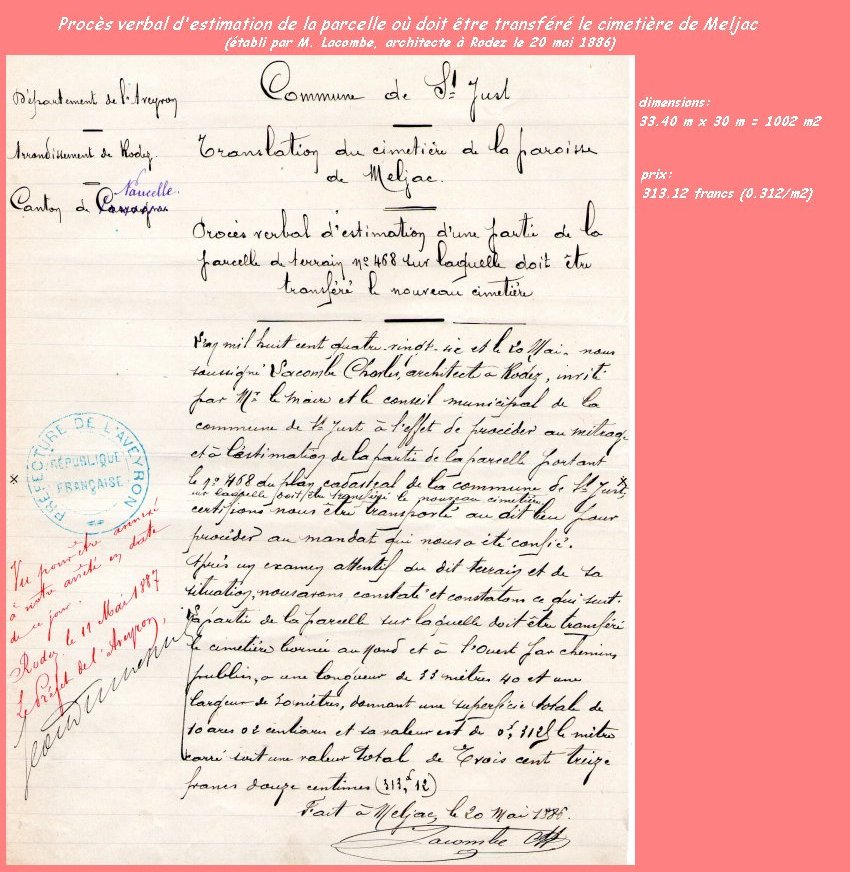 Procès verbal d'estimation de la parcelle où doit être transféré le cimetière de Meljac
(établi par M. Lacombe, architecte à Rodez le 20 mai 1886)
dimensions:
33.40 m x 30 m = 1002 m2
prix:
313.12 francs (0.312/m2)
Département de l'Aveyron
Arrondissement de Rodez.
Naucelle.
Canton de
Commune de St Just
Translation du cimetière de la paroisse
de Meljac.
Procès verbal d'estimation d'une partie de la
parcelle de terrain no 468 sur laquelle doit être
transféré le nouveau cimetière
L'an mil huit cent quatre-vingt-six et le 20 Mai, nous
soussigné Lacombe Charles, architecte à Rodez, invité
par Mr le maire et le conseil municipal de la
commune de St Just à l'effet de procéder au métrage
et à l'estimation de la partie de la parcelle portant
le no 468 du plan cadastral de la commune de St Just, x
sur laquelle doit être transféré le nouveau cimetière
certifions nous être transporté au dit lieu pour
procéder au mandat qui nous a été confié.
Après un examen attentif du dit terrain et de sa
situation, nous avons constaté et constatons ce qui suit.
La partie de la parcelle sur laquelle doit être transféré
le cimetière bornée au Nord et à l'Ouest par chemins
publics, a une longueur de 33 mètres 40 et une
largeur de 30 mètres, donnant une superficie totale de
10 ares 02 centiares et sa valeur est de 0f,312 le mètre
carré soit une valeur total de Trois cent treize
francs douze centimes (313f,12)
Fait à Meljac, le 20 Mai 1886.
Lacombe
x
PRÉFECTURE DE L'AVEYRON
RÉPUBLIQUE
FRANÇAISE
Vu pour être annexé
à notre arrêté en date
de ce jour.
Rodez, le 11 Mai 1887
Le Préfet de l'Aveyron,